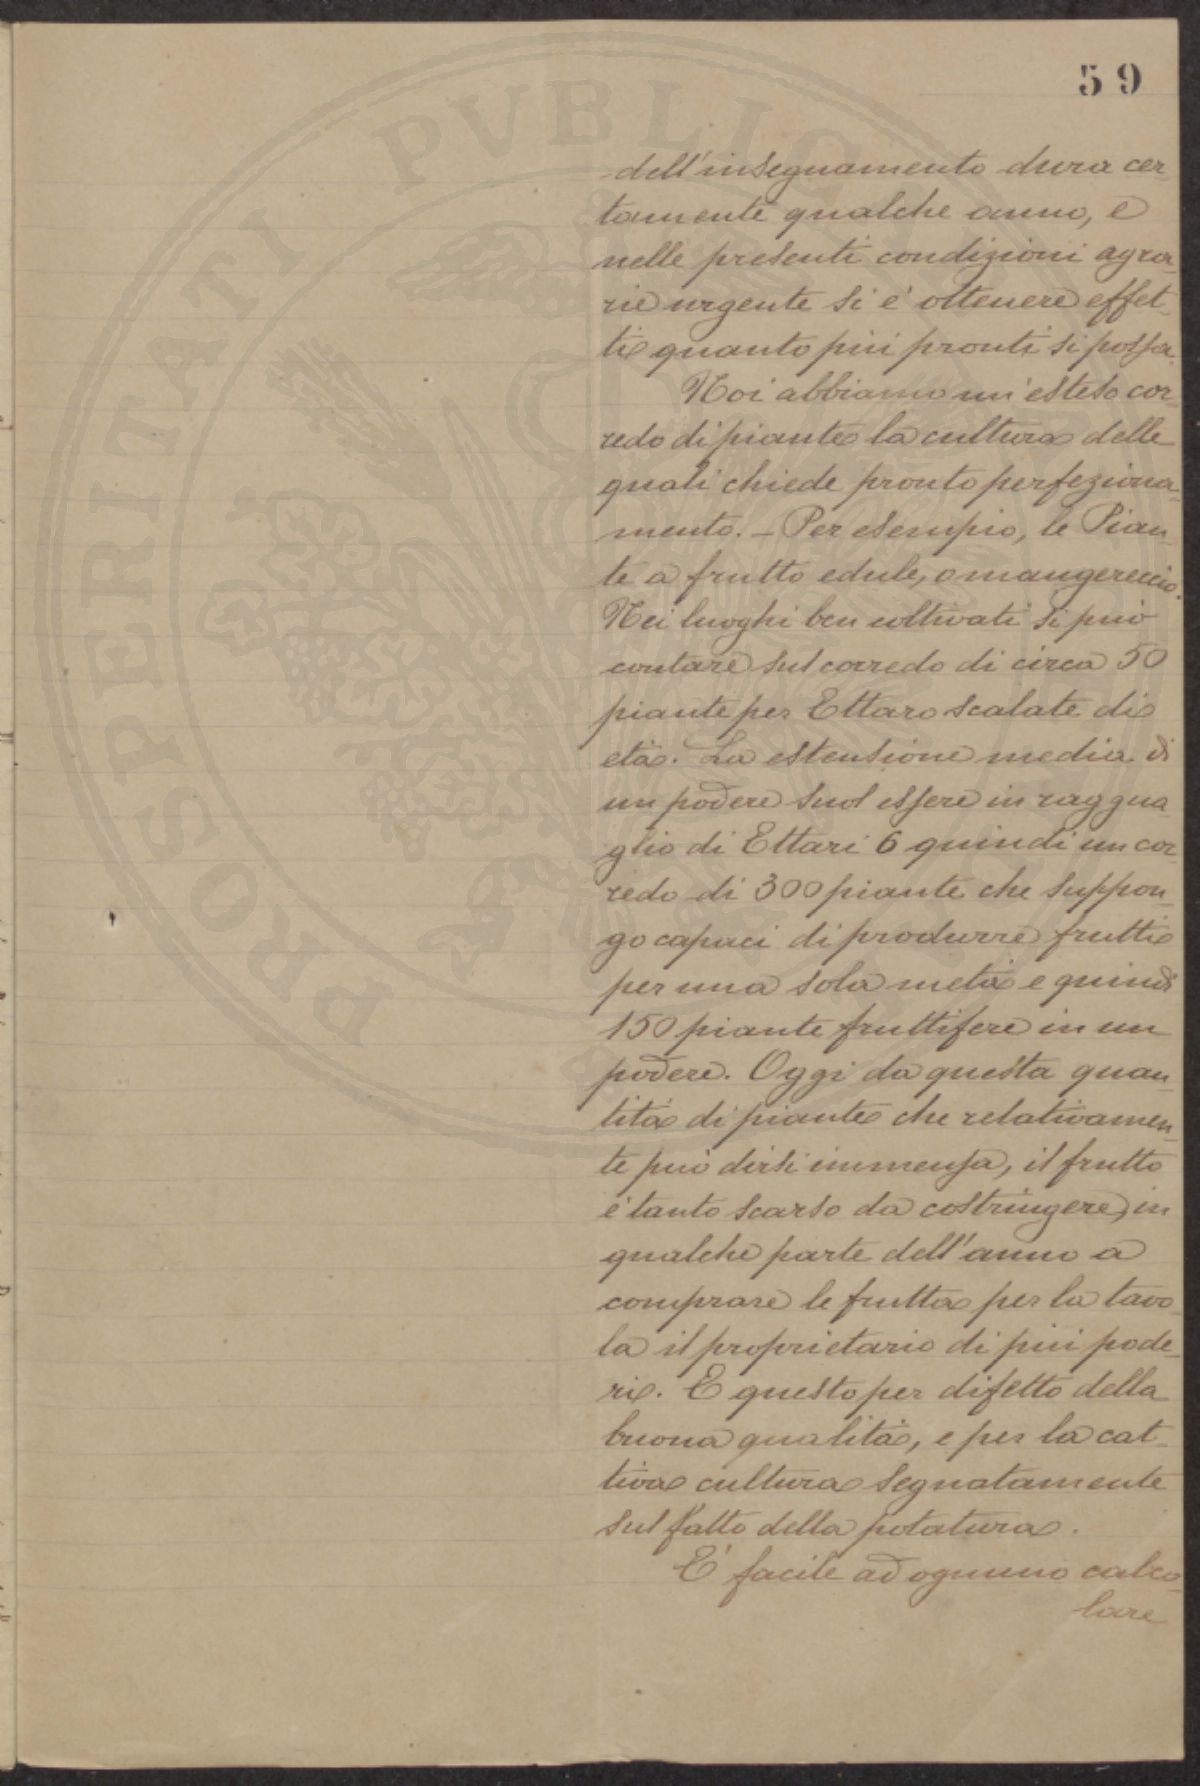 59
dell'insegnamento dura cer-
tamente qualche anno, e
nelle presenti condizioni agra-
rie urgente si è ottenere effet-
ti quanto più pronti si possa.
Noi abbiamo un'esteso cor-
redo di piante la cultura delle
quali chiede pronto perfeziona-
mento. - Per esempio, le Pian-
te a frutto edule, o mangereccio.
Nei luoghi ben coltivati si può
contare sul corredo di circa 50
piante per Ettaro scalate di
età. La estensione media di
un podere suol essere in raggua-
glio di Ettari 6 quindi un cor-
redo di 300 piante che suppon-
go capaci di produrre frutti
per una sola metà e quindi
150 piante fruttifere in un
podere. Oggi da questa quan-
tità di piante che relativamen-
te può dirsi immensa, il frutto
è tanto scarso da costringere, in
qualche parte dell'anno a
comprare le frutta per la tavo-
la il proprietario di più pode-
ri. E questo per difetto della
buona qualità, e per la cat-
tiva cultura segnatamente
sul fatto della potatura.
E' facile ad ognuno calco-
lare
PROSPERITATI PVBLICAE